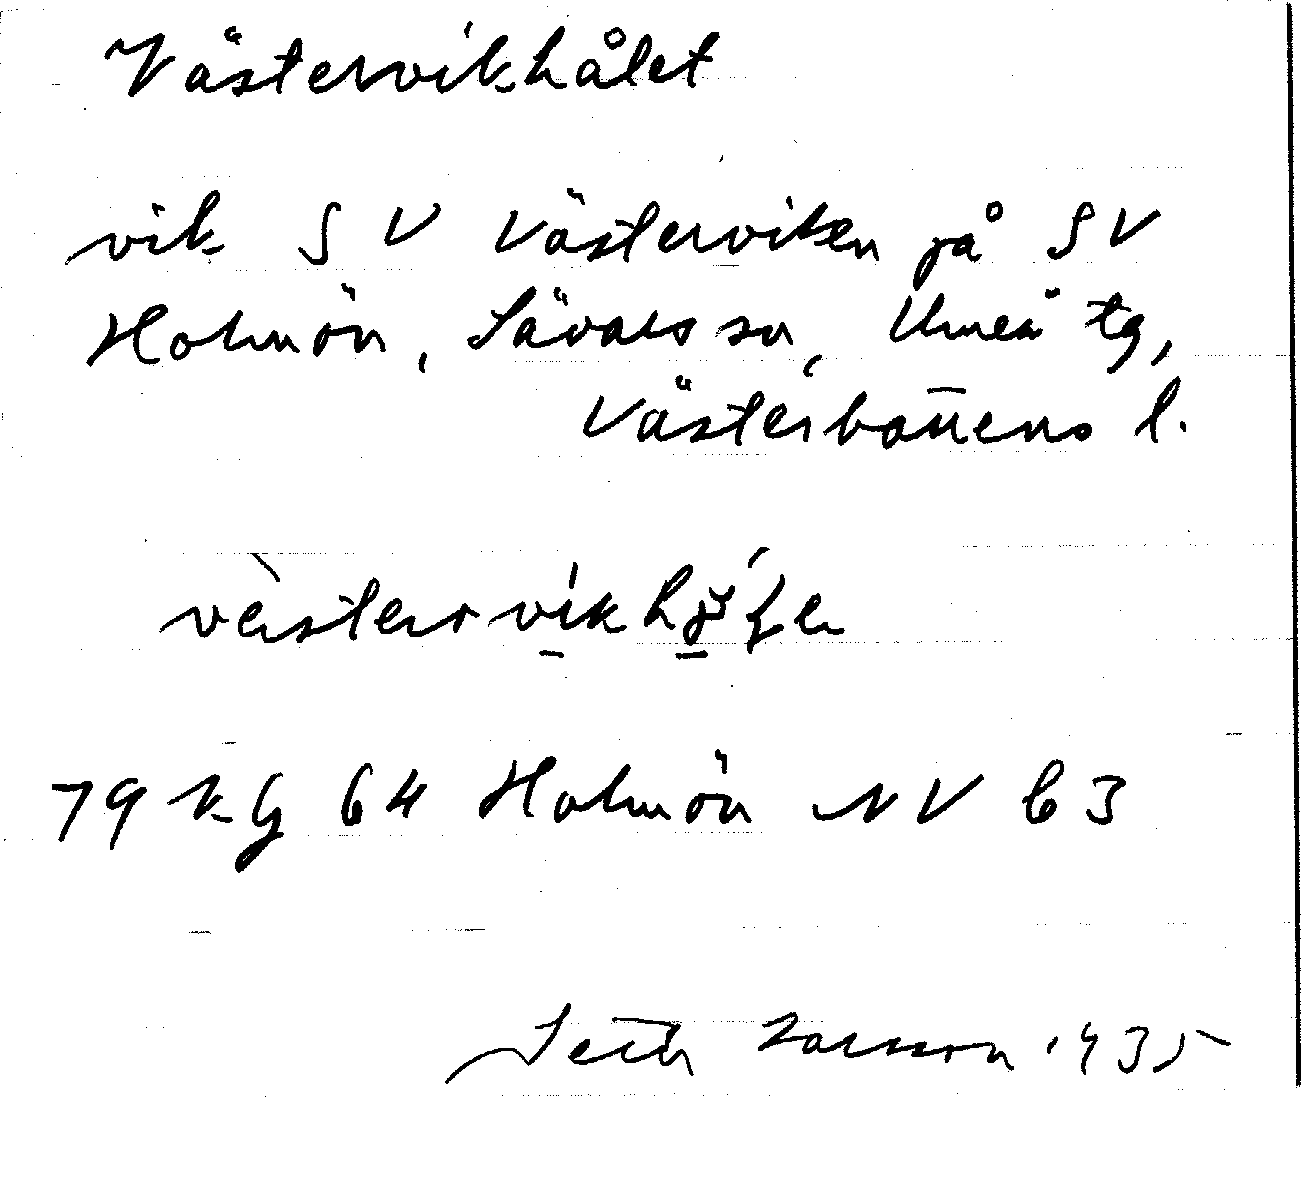 Västervikhålet
vik SV Västerviken på SV
Holmön, Sävars sn, Umeå tg,
Västerbottens l.
79 kg 64 Holmön NV b3
Seth Larsson 1935